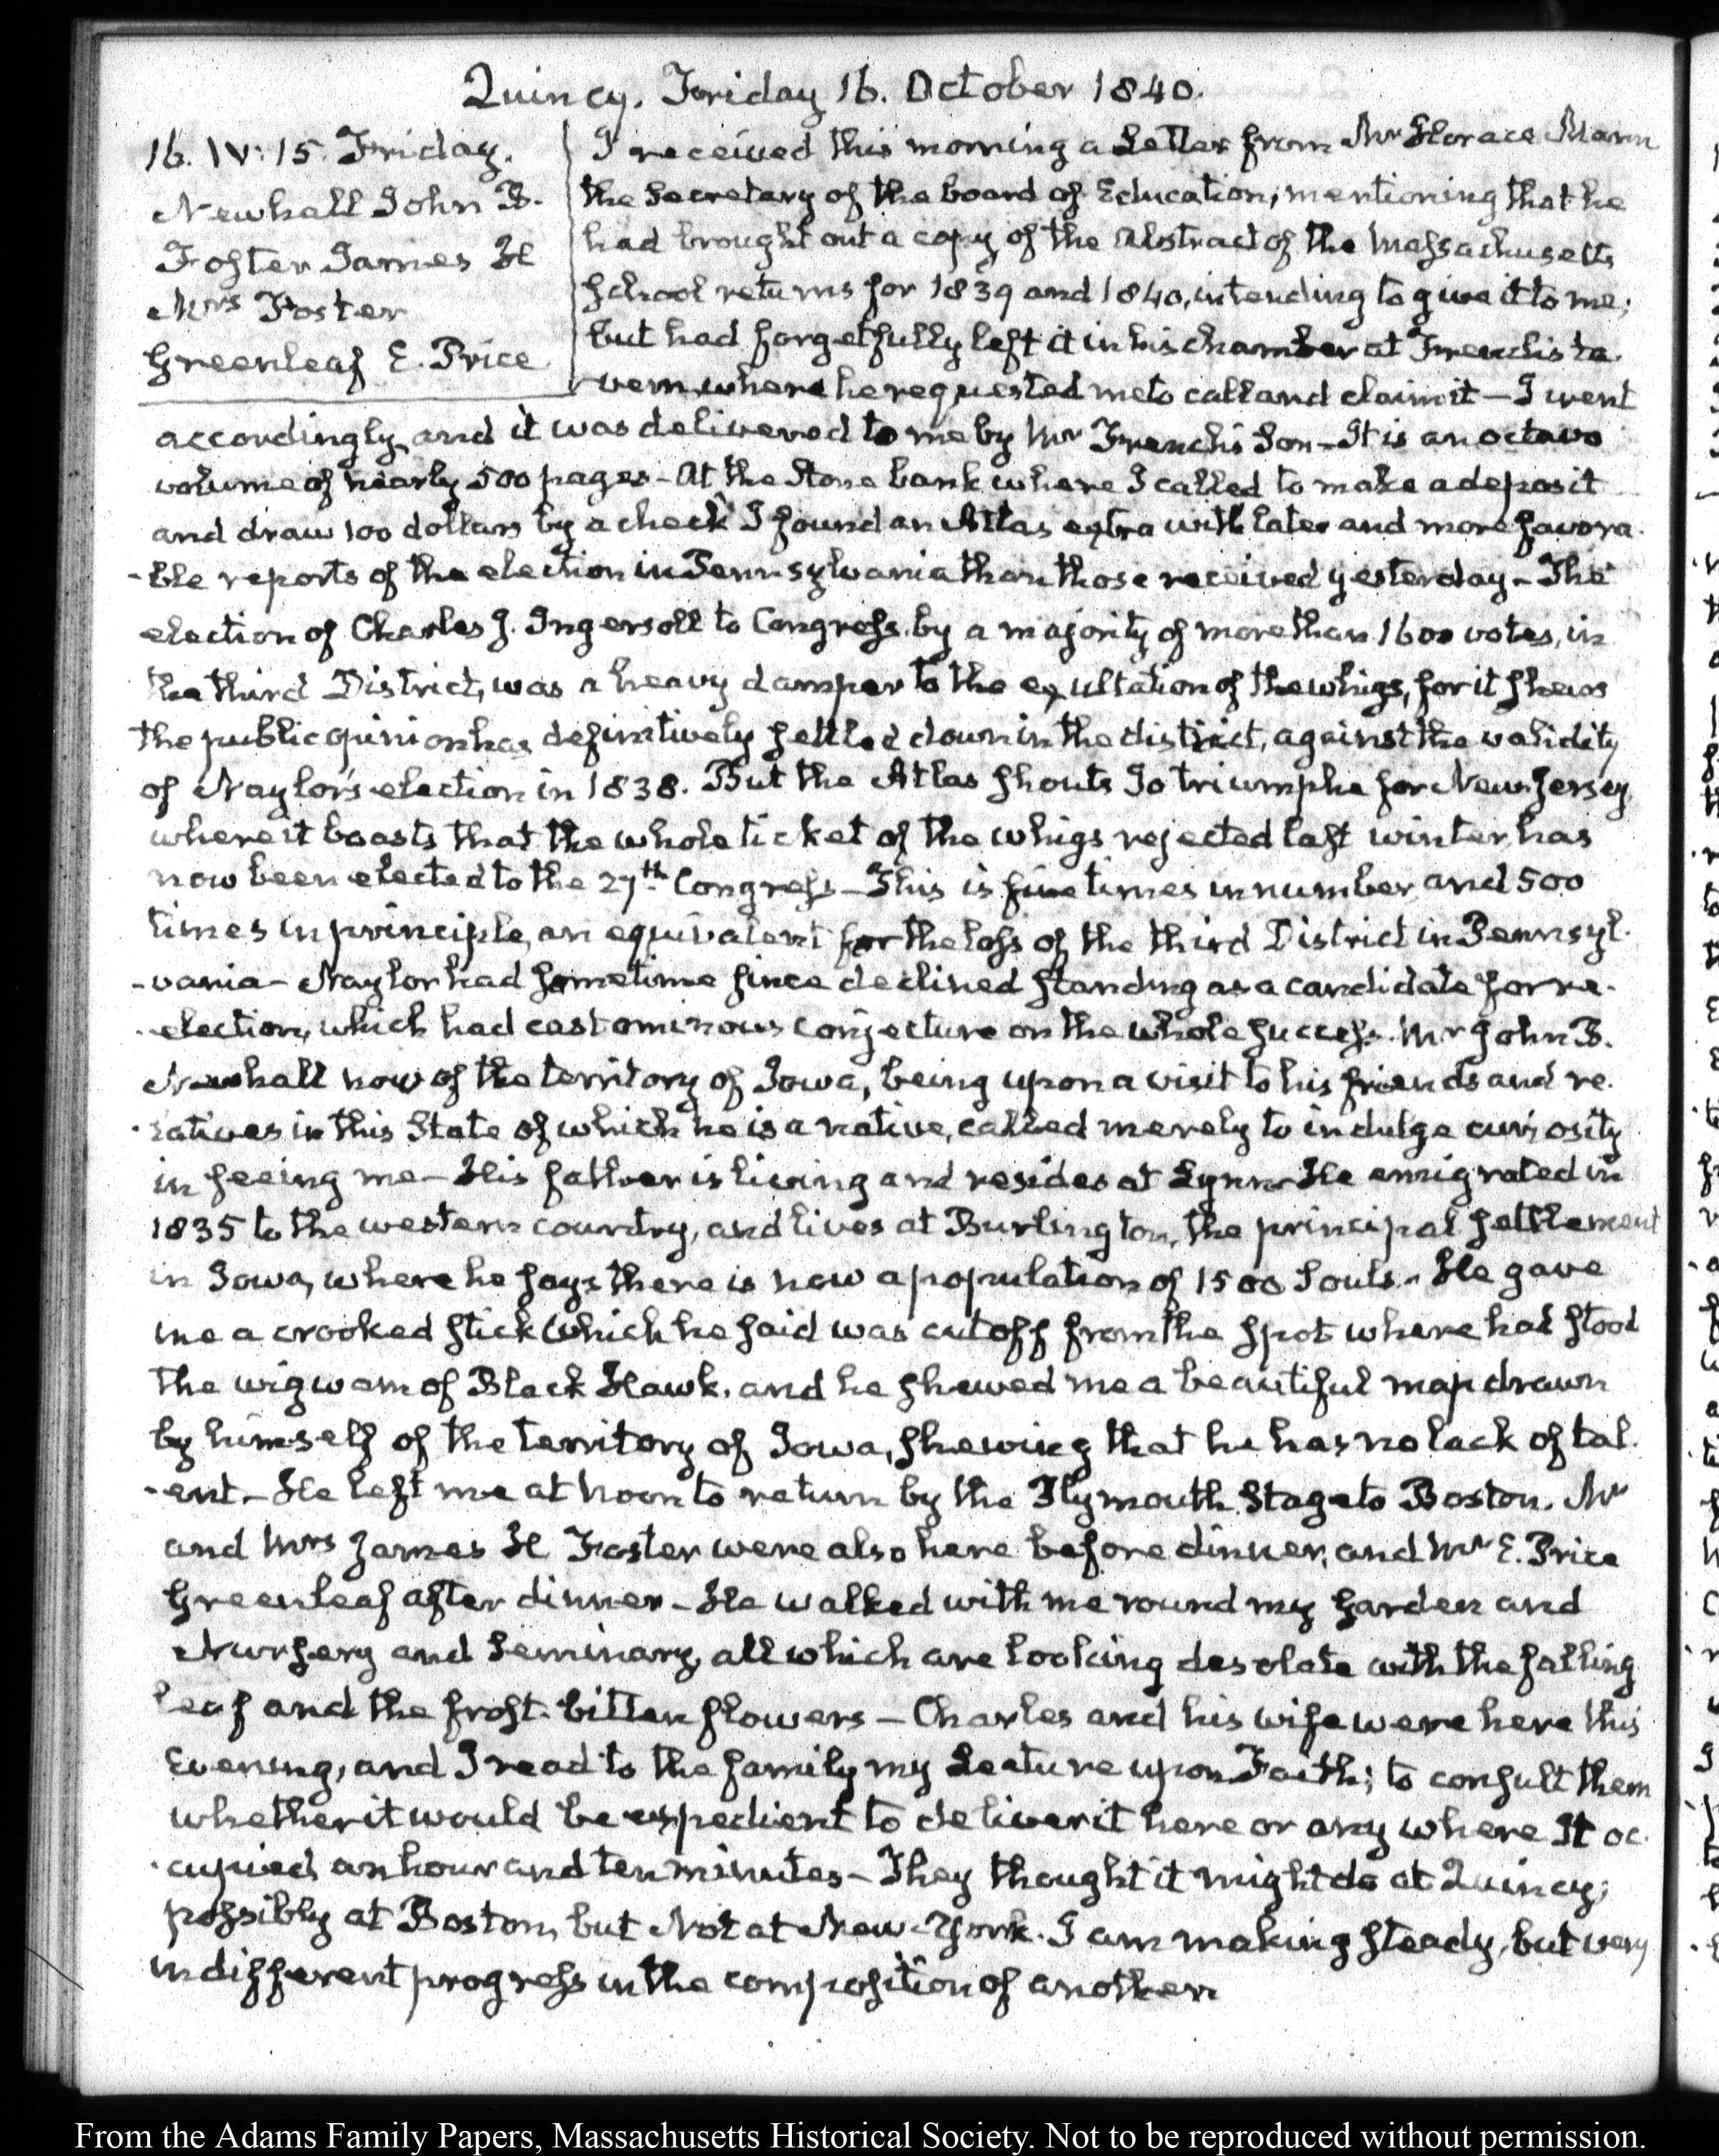 Quincy. Friday 16. October 1840.
16. IV: 15. Friday.
Newhall John B.
Foster James H
Mrs Foster
Greenleaf E. Price
I received this morning a Letter from Mr Horace Mann
the Secretary of the board of Education, mentioning that he
had brought out a copy of the Abstract of the Massachusetts
School returns for 1839 and 1840, intending to give it to me;
but had forgetfully left it in his chamber at French's ta
vern, where he requested me to call and claim it — I went
accordingly, and it was delivered to me by Mr French's Son — It is an octavo
volume of nearly 500 pages — At the Stone bank where I called to make a deposit
and draw 100 dollars by a check I found an Atlas extra with later and more favora
-ble reports of the election in Pennsylvania than those received yesterday — The
election of Charles J. Ingersoll to Congress, by a majority of more than 1600 votes, in
the third District, was a heavy damper to the exultation of the whigs, for it shews
the public opinion has definitively settled down in the district, against the validity
of Naylor's election in 1838. But the Atlas shouts Io triumphe for New-Jersey,
where it boasts that the whole ticket of the whigs rejected last winter, has
now been elected to the 27th Congress — This is five times in number, and 500
times in principle, an equivalent for the loss of the third District in Pennsyl-
-vania — Naylor had sometime since declined standing as a candidate for re-
-election, which had cast ominous conjecture on the whole success. Mr John B.
Newhall now of the territory of Iowa, being upon a visit to his friends and re-
-latives in this State of which he is a native, called merely to indulge curiosity
in seeing me — His father is living and resides at Lynn — He emigrated in
1835 to the western country, and lives at Burlington, the principal settlement
in Iowa, where he says there is now a population of 1500 Souls. — He gave
me a crooked stick which he said was cut off from the spot where had stood
the wigwam of Black Hawk, and he shewed me a beautiful map drawn
by himself of the territory of Iowa, shewing that he has no lack of tal-
-ent — He left me at noon to return by the Plymouth Stage to Boston. Mr
and Mrs James H Foster were also here before dinner, and Mr E. Price
Greenleaf after dinner — He walked with me round my garden and
Nursery and Seminary, all which are looking desolate with the falling
leaf and the frost-bitten flowers — Charles and his wife were here this
Evening, and I read to the family my Lecture upon Faith; to consult them
whether it would be expedient to deliver it here or any where It oc-
-cupied an hour and ten minutes — They thought it might do at Quincy;
possibly at Boston, but Not at New-York. I am making steady, but very
indifferent progress in the composition of another
From the Adams Family Papers, Massachusetts Historical Society. Not to be reproduced without permission.